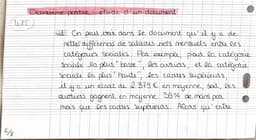 Deuxième partie : étude d'un document
On peut voir dans le document qu'il y a de
nette différence de salaires nets mensuels entre les
catégories sociales. Par exemple, pour la catégorie
sociale la plus "basse", les ouvriers, et la catégorie
sociale la plus "haute", les cadres supérieurs,
il y a un écart de 2 379 € en moyenne, soit, les
ouvriers gagnent en moyenne 58% de moins par
mois que les cadres supérieurs. Alors qu'entre